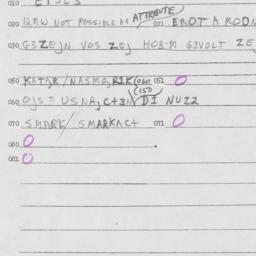 010 ETJES
020 QMW NOT POSSIBLE AS ATTRIBUTE 021 EROT A RODN
030 G3ZEJN VOS ZEJ HOB-M G3VOLT ZE
050 KATAR/NASMO,RIK(060 051 0
(150
060 OJS = USNA,C+3N DI NUZZ
070 SMARK/ SMARKACT 071 0
080 0
081 0